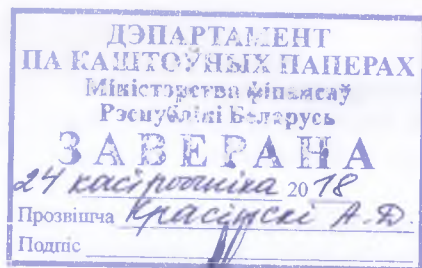 ДЭПАРТАМЕНТ
ПА КАШТОЎНЫХ ПАПЕРАХ
Міністэрства фінансаў
Рэспублікі Беларусь
ЗАВЕРАНА
24 кастрычніка 2018
Прозвішча Красінскі А.Д.
Подпіс